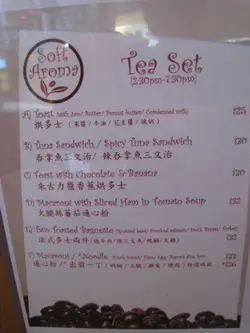 Soft
Aroma
Tea Set
(2:30pm-7:30pm)
A) Toast (with Jam/ Butter/ Peanut butter/ Condensed milk) $25
烘多士 (果醬/牛油/花生醬/煉奶)
B) Tuna Sandwich / Spicy Tuna Sandwich $30
吞拿魚三文治 / 辣吞拿魚三文治
C) Toast with Chocolate & Banana $30
朱古力醬香蕉烘多士
D) Macaroni with Sliced Ham in Tomato Soup $32
火腿絲蕃茄通心粉
E) Two Toasted Baguette
法式多士兩件
F) Macaroni / "Noodle
通心粉/"出前一丁